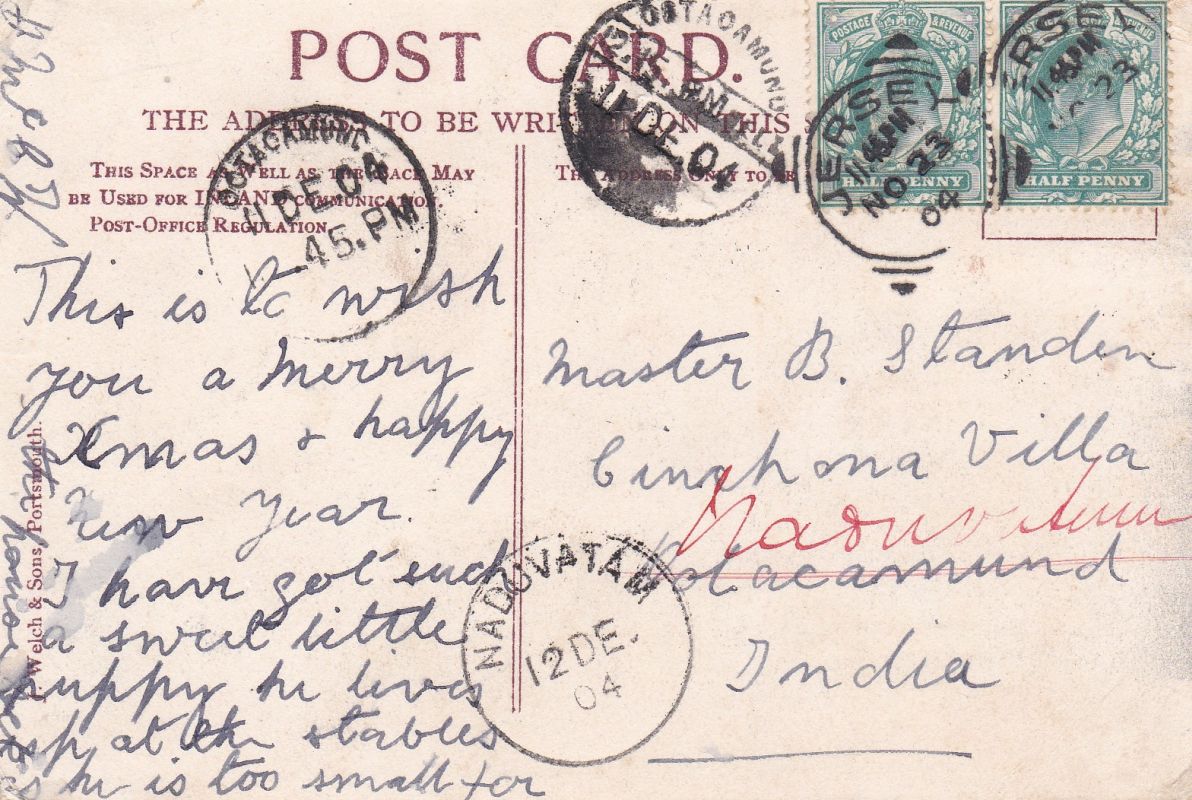 POST CARD.
THE ADDRESS TO BE WRITTEN ON THIS S
THIS SPACE AS WELL AS THE BACK MAY
BE USED FOR INLAND COMMUNICATION.
POST-OFFICE REGULATION.
THE ADDRESS ONLY TO BE
POSTAGE & REVENUE
HALF PENNY
POSTAGE & REVENUE
HALF PENNY
JERSEY
11.45PM
NO 23
04
JERSEY
11.45PM
NO 23
OOTACAMUND
2.45.PM
11 DE.04
OOTACAMUND
11 DE.04
45.PM
This is to wish
you a merry
Xmas & happy
New Year.
I have got such
a sweet little
puppy he lives
up at the stables
as he is too small for
the house
Master B. Standen
Cinchona Villa
Naduvatum
Ootacamund
India
NADUVATAM
12 DE.
04
Welch & Sons, Portsmouth.